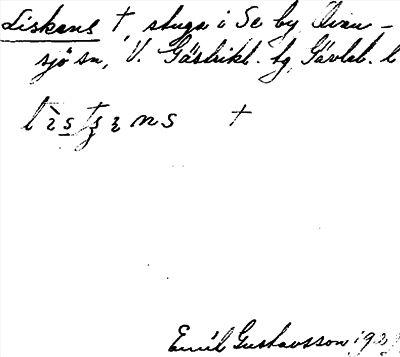 Liskens †, stuga i Se by Ovan-
sjö sn, V. Gästrikl. tg, Gävleb. l
†
Emil Gustavsson 192